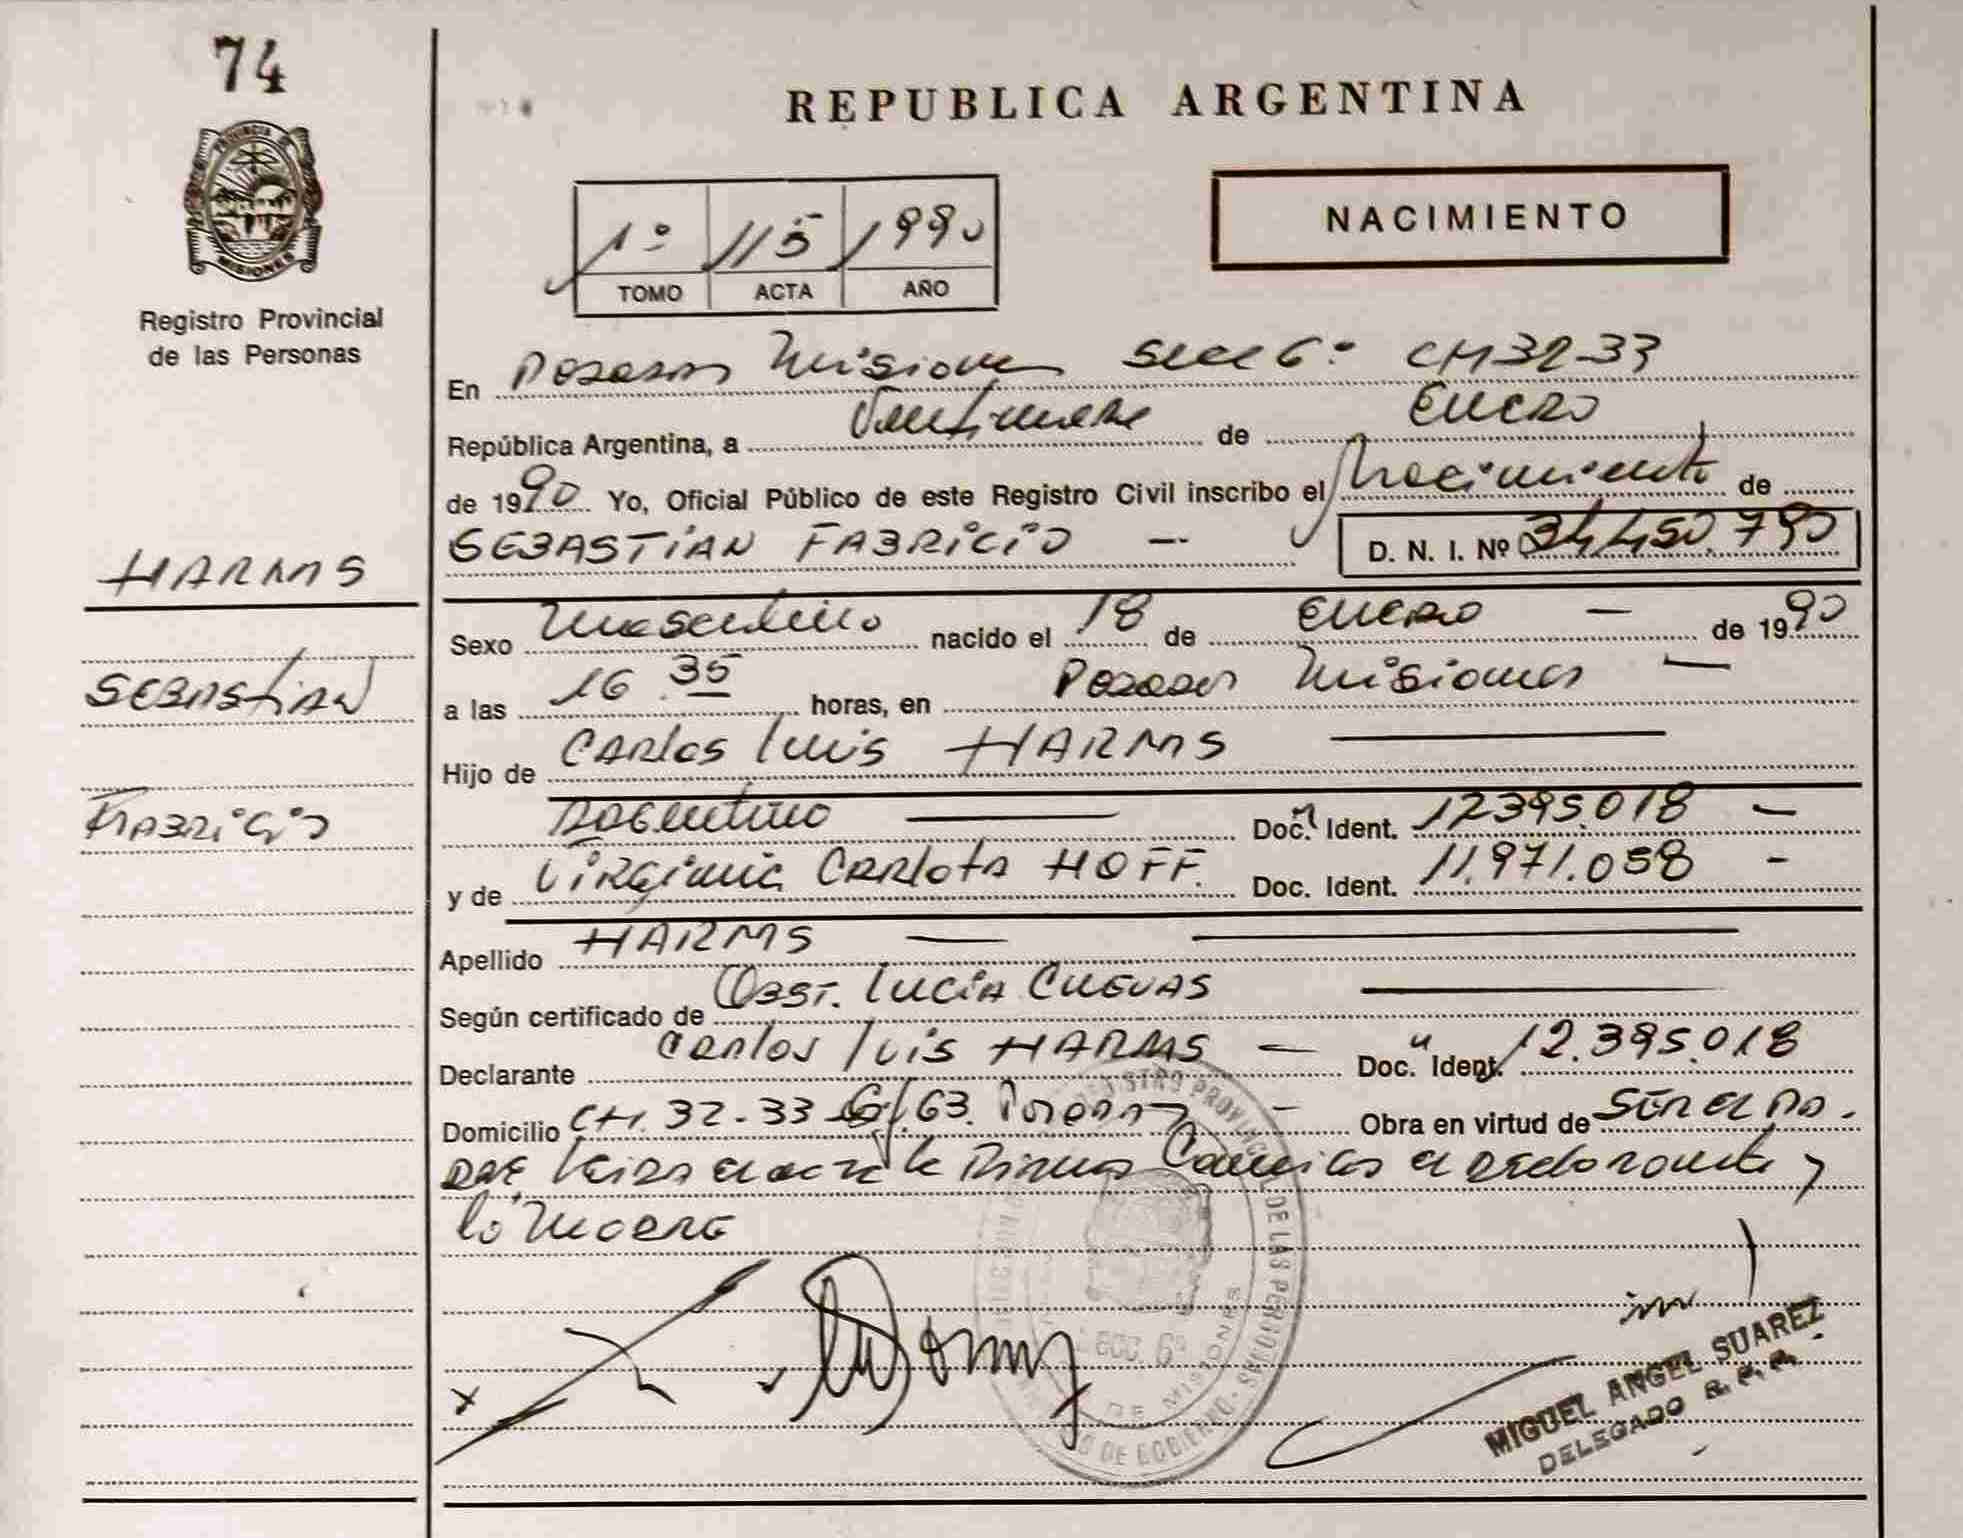 74
REPUBLICA ARGENTINA
PROVINCIA DE
MISIONES
NACIMIENTO
1º 115 1990
TOMO ACTA AÑO
Registro Provincial
de las Personas
En Posadas Misiones Secc 6º CH 32-33
República Argentina, a Veintinueve de Enero
de 1990 Yo, Oficial Público de este Registro Civil inscribo el Nacimiento de
SEBASTIAN FABRICIO — D. N. I. Nº 34.450.790
HARMS
Sexo Masculino nacido el 18 de Enero — de 1990
SEBASTIAN
a las 16.35 horas, en Posadas Misiones —
Hijo de Carlos Luis HARMS
FABRICIO
Argentino — Doc. Ident. 12395.018 —
y de Virginia Carlota HOFF. Doc. Ident. 11.971.058 -
Apellido HARMS —
Según certificado de Obst. Lucia CUEVAS
Declarante Carlos Luis HARMS — Doc. Ident. 12.395.018
Domicilio CH. 32-33 63. Posadas — Obra en virtud de
Leida el acta la Firma el declarante y
REGISTRO PROVINCIAL DE LAS PERSONAS
SECC. 6ª
DE MISIONES
DE GOBIERNO
MIGUEL ANGEL SUAREZ
DELEGADO R. P. P.